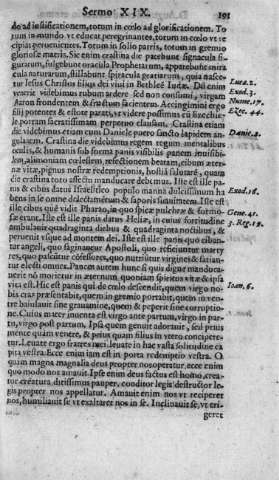 Sermo XIX. 191
do ad iustificationem, totum in cœlo ad glorificationem. To
tum in mundo vt educat peregrinantes, totum in cœlo vt re
cipiat
Totum in solio patris, totum in gremio
gloriosæ matris. Sic enim crastina die
signacula fi-
gurarum, fulgebunt oracula Prophetarum,
cula naturarum, stillabunt spiracula gratiarum, quia nasce-
tur Iesus Christus filius dei viui in Bethleẽ Iudæ. Did enim Lucæ 2.
videbimus rubum ardere sed non comburi, virgam Exod. 3.
Aaron frondentem & fructum facientem. Accingimini ergo Nume. 17.
fide, & estote parati, vt videre possimus
Ezec. 44.
portam sacratissimam perpetuo clausam. Crastina etiam
die videbimus etiam cum Daniele puero sancto lapidem an- Danie. 2.
gularem. Crastina die videbimus regem regum mentalibus
oculis, & humanis sub forma panis visibilis panem inuisibi-
lem, alimoniam cœlestem, refectionem beatam, cibum æter-
næ vitæ, pignus nostræ redemptionis, hostiã salutarẽ, quam
die crastina toto affectu manducare debemus. Iste est ille pa-
nis & cibus datus Israëlitico populo manna dulcissimum ha Exod. 16.
bens in se omne delectamẽtum & saporis suauitatem. Iste est
ille cibus quẽ vidit Pharao, in quo spicæ pulchræ & formo- Gene. 41.
sæ erant. Iste est ille panis datus Heliæ, in cuius fortitudine 3. Reg. 19.
ambulauit quadraginta diebus & quadraginta noctibus, &
peruenit vsque ad montem dei. Iste est ille panis quo ciban-
tur angeli, quo saginantur Apostoli, quo reficiuntur marty
res, quo pascuntur cõfessores, quo nutriuntur virgines & satian
tur electi omnes. Panem autem hunc si quis digne manduca-
uerit nõ morietur in æternum, quoniam spiritus vitæ & ipsa
vita est. Hic est panis qui de cœlo descendit, quem virgo no- Ioan. 6.
bis cras præsentabit, quem in gremio portabit, quem in ven-
tre baiulauit sine grauamine, quem & peperit sine corruptio-
ne. Cuius mater inuenta est virgo ante partum, virgo in par-
tu, virgo post partum. Ipsa quem genuit adorauit, sed prius
mente quàm ventre, & prius quàm filius in vtero
tur. Leuate ergo fratres mei leuate in hac vasta solitudine ca
pita vestra. Ecce enim iam est in porta redemptio vestra. O
quàm magna magnalia deus propter nos operatur, ecce enim
quo modo nos amauit. Ipse enim deus factus est homo, crea-
tor creatura, ditissimus pauper, conditor legis destructor le-
gis propter nos appellatur. Amauit enim nos vt reciperet
nos, humiliauit se vt exaltaret nos in se. Inclinauit se, vt eri-
geret